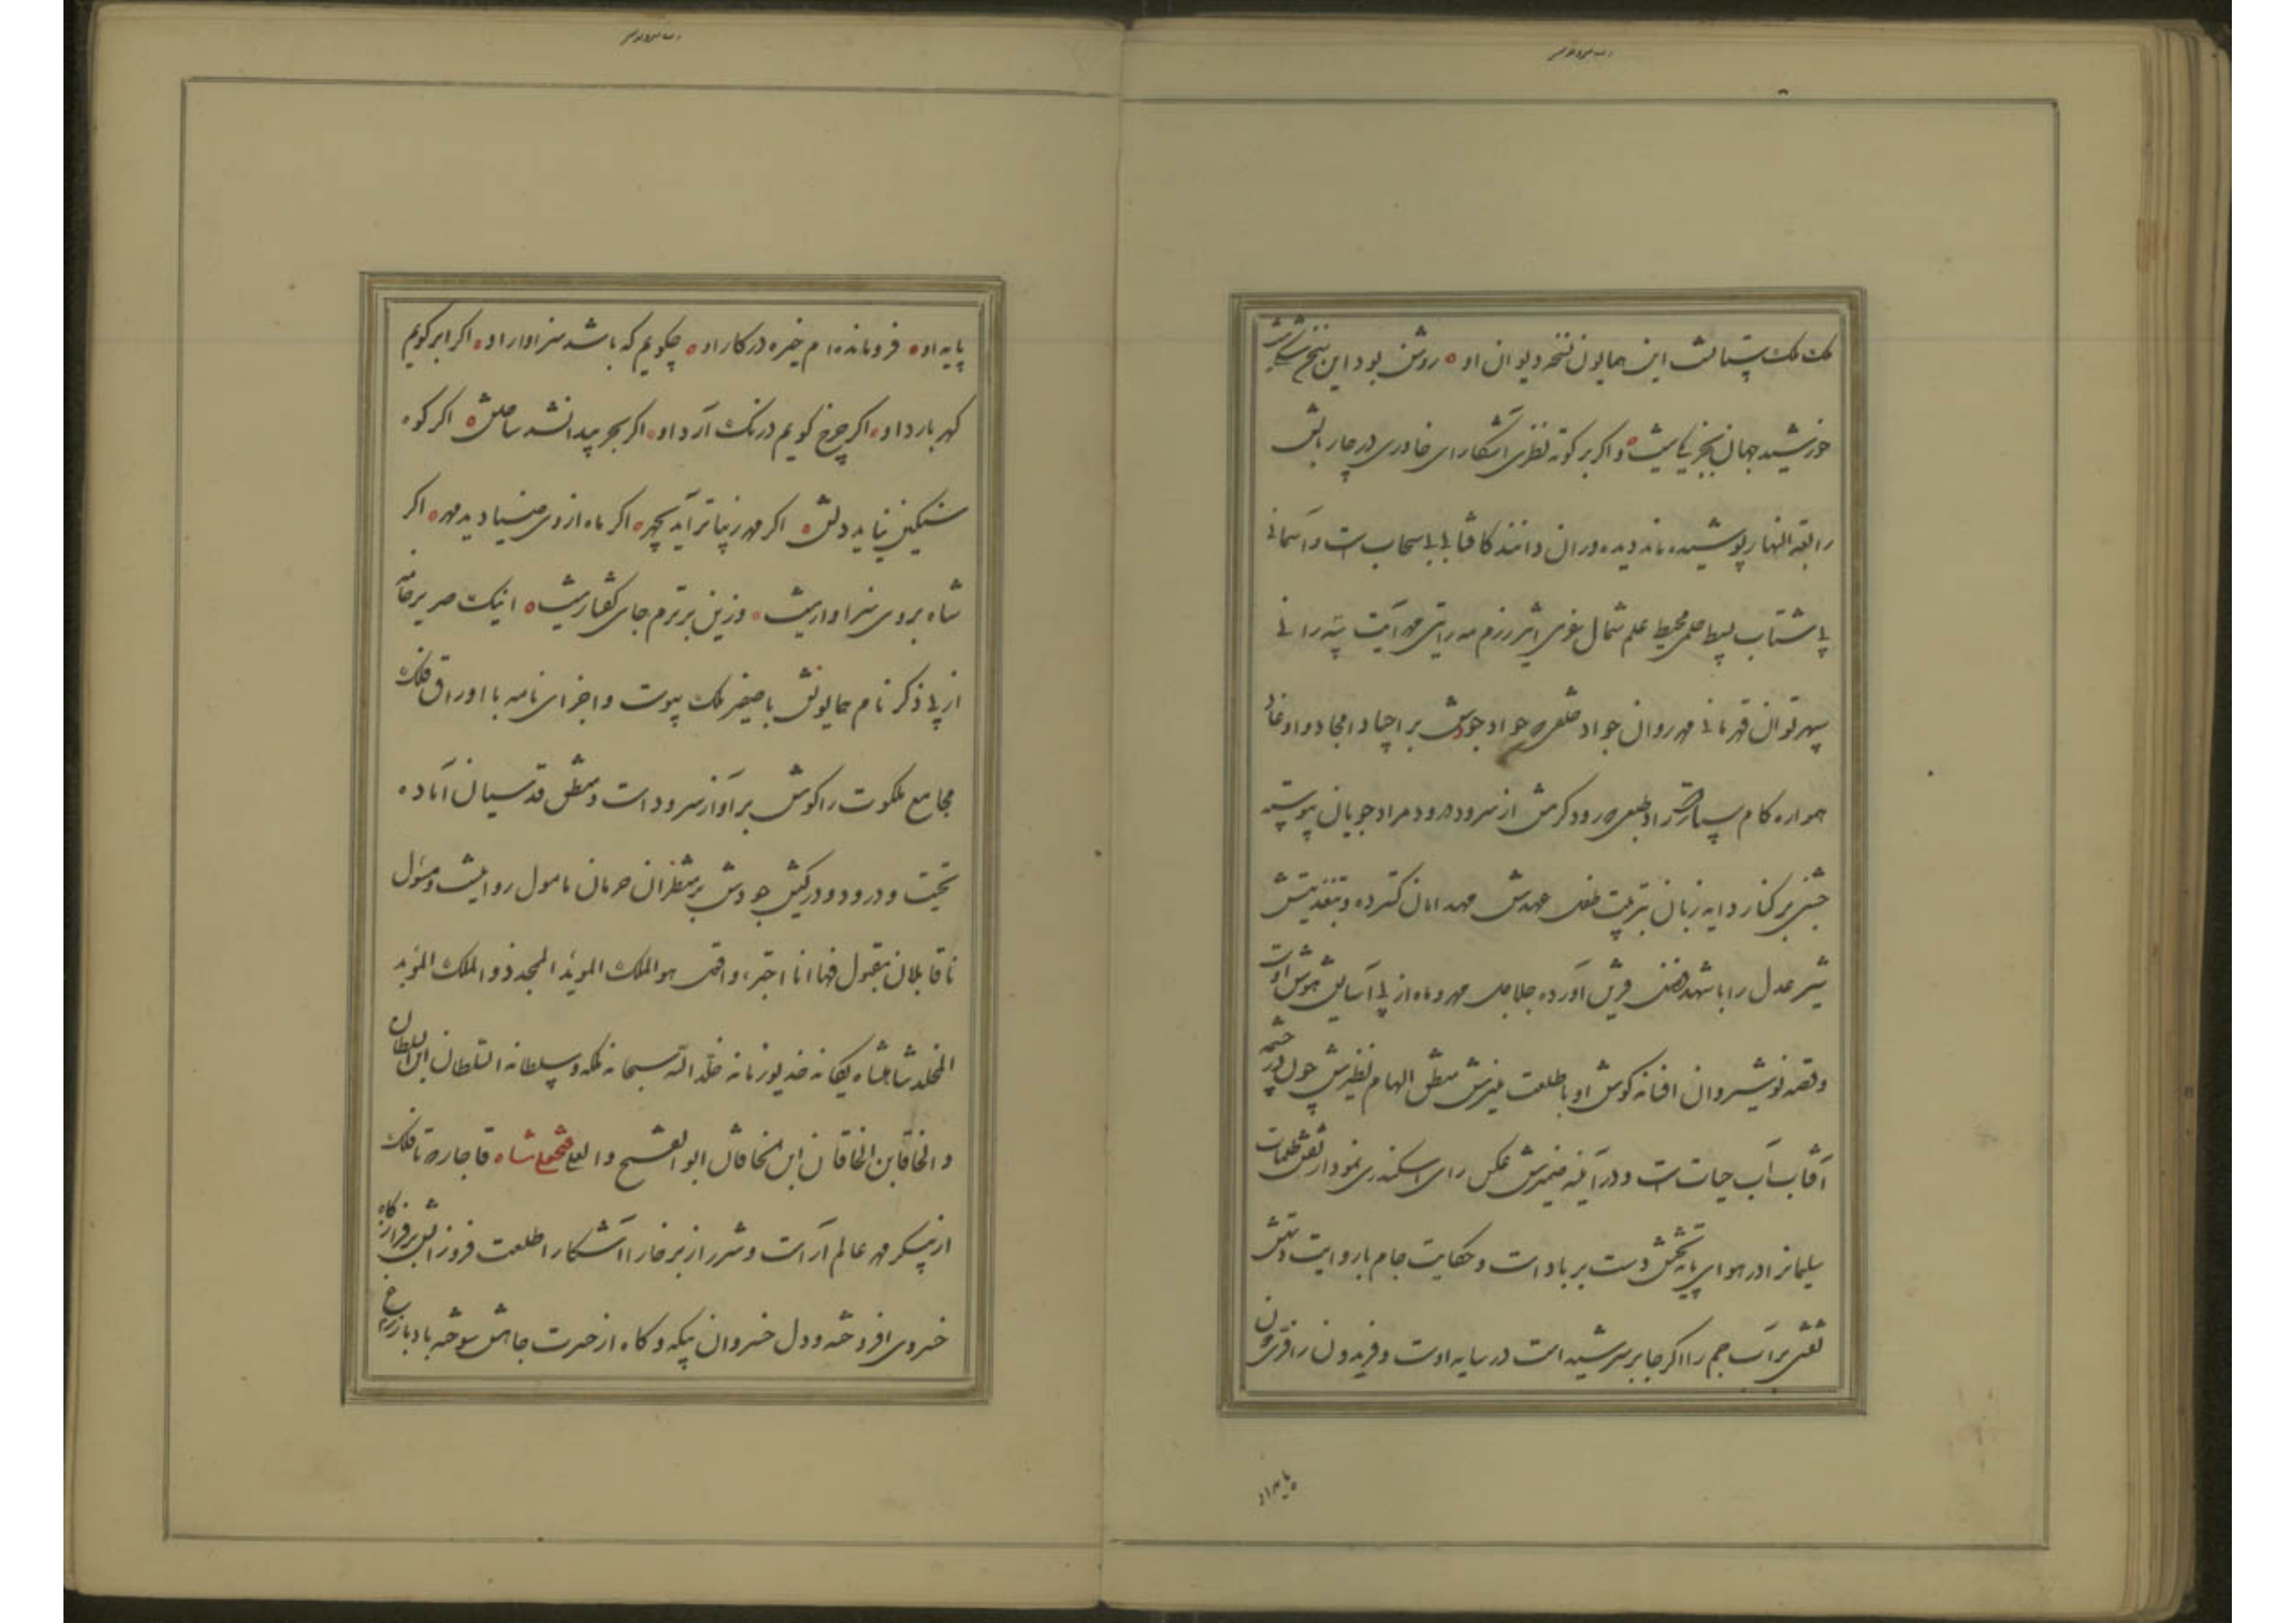 ملک ملک ستانست این همایون نسخه دیوان او روشن بود این
خورشید جهان بجز یکی نیست و اگر بر کوته نظری آشکارا ی خاوری در چار بالش
رابعة النهار پوشیده ماند دیده وران دانند کافتابی بی سحاب است و آسمانی
بی شتاب بسیط حلمی محیط علم شمال عزمی رزم مه رایتی مهر آیت
سپهر توان قهرمانی مهر روان جواد جودش بر اجیاد امجاد و اوغاد
همواره کام از سرود درود مراد جویان پیوسته
جشنی بر کنار دایه زبان تربیت طفل عهدش مهد امان گسترده و بتغذیتش
شیر عدل را با شهد فضل قرین آورده جلاجل مهر و ماه از پی آسایش هوش اوست
و قصه نوشیروان افسانه گوش او با طلعت منیرش منطق الهام نظیرش چون در چشمه
آفتاب آب حیات است و در آینه ضمیرش عکس رای اسکندری نمودار نقش ظلمات
سلیمانرا در هوای پایه تختش دست بر باد است و حکایت جام با روایت دستش
نقشی بر آب جم را اگر جا بر سر شید است در سایه اوست و فریدون را فر
پایه او
پایه او فرومانده ام خیره در کار او چگویم که باشد سزاوار او اگر ابر گویم
گهر بارد او اگر چرخ گویم درنگ آرد او اگر بحر پیدا نشد ساحلش اگر کوه
سنگین نیاید دلش اگر مهر زیباتر آید بچهر اگر ماه از وی ضیا دید مهر اگر
شاه بر وی سزاوار نیست وزین برترم جای گفتار نیست اینک صریر خامه
از پی ذکر نام همایونش با صفیر ملک پیوست و اجزای نامه با اوراق فلک
مجامع ملکوت را گوش بر آواز سرود است و منطق قدسیان آماده
تحیت و درود و در کیش جودش بر منتظران حرمان مامول روا نیست و مسئول
ناقابلان مقبول فها انا اجترء و اقول هو الملک الموید الممجد ذو الملک الموبد
المخلد شاهنشاه یگانه خدیو زمانه خلد الله سبحانه ملکه و سلطانه السلطان ابن السلطان
و الخاقان ابن الخاقان ابن الخاقان ابو الفتح و العلی فتحعلی شاه قاجار تا فلک
از پیکر مهر عالم آراست و شرر از بر خارا آشکارا طلعت فروزانش بر فراز گاه
خسروی افروخته و دل خسروان بیگه و گاه از حسرت جاهش سوخته باد